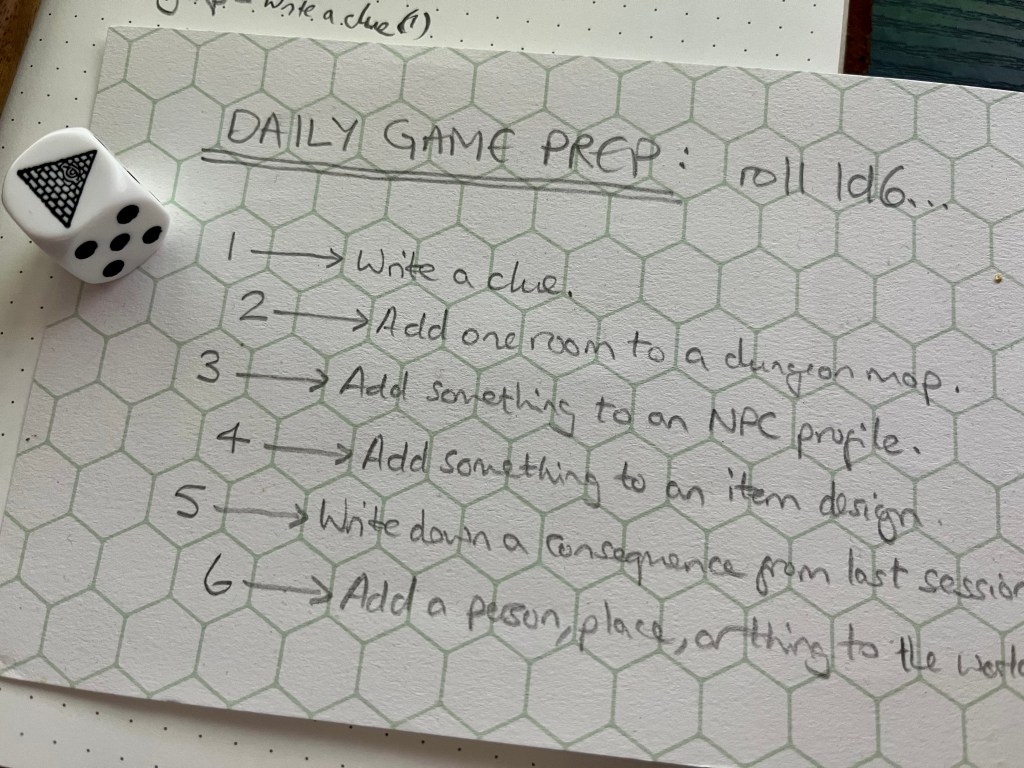 write a clue (1).
DAILY GAME PREP: roll 1d6...
1 → Write a clue.
2 → Add one room to a dungeon map.
3 → Add something to an NPC profile.
4 → Add something to an item design.
5 → Write down a consequence from last session
6 → Add a person, place, or thing to the world